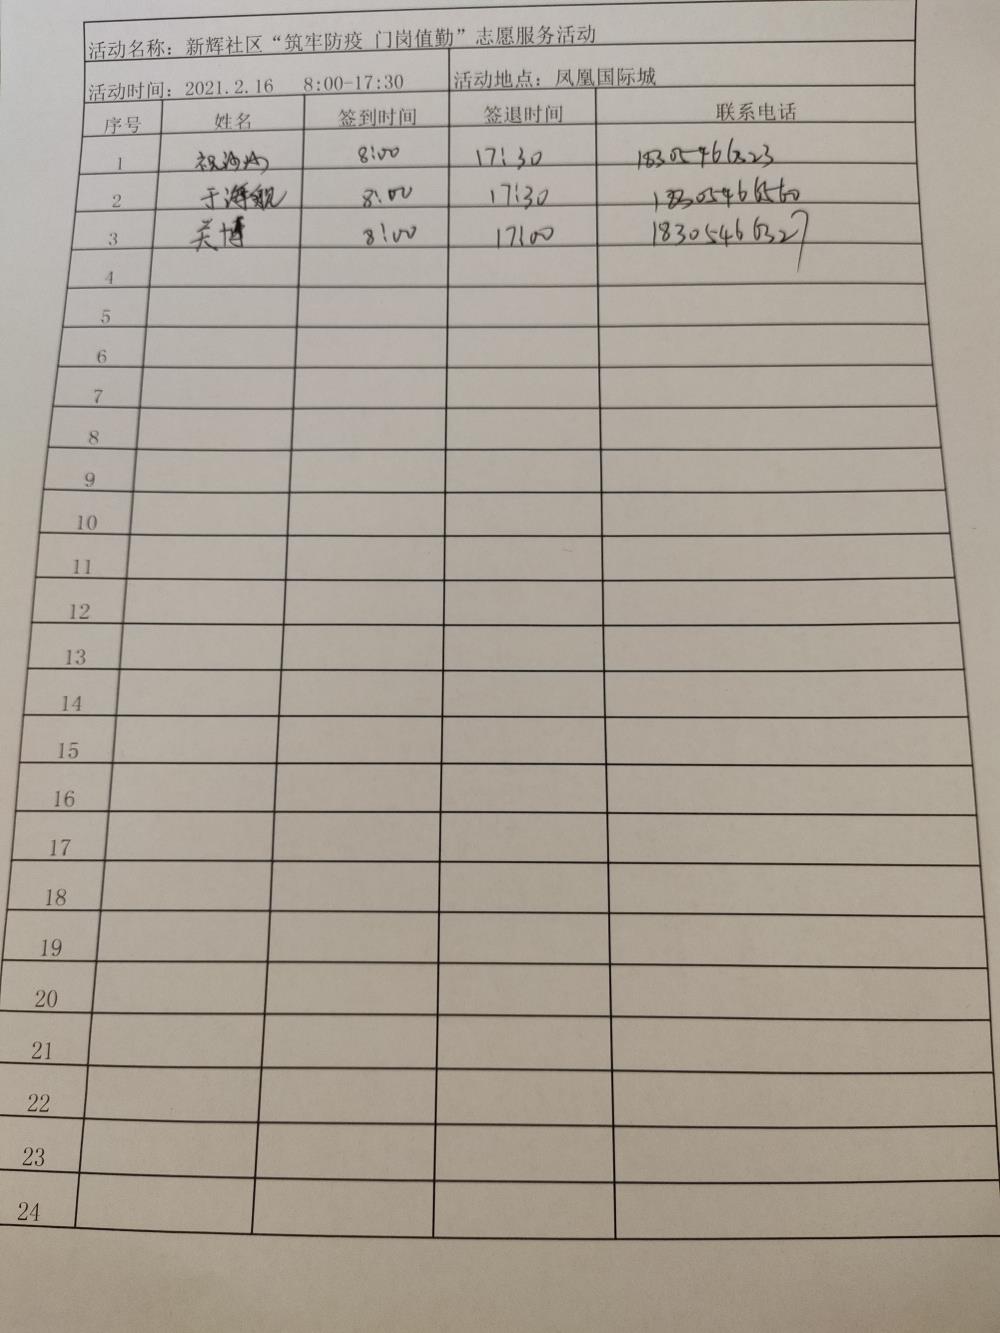 活动名称：新辉社区“筑牢防疫 门岗值勤”志愿服务活动
活动时间：2021.2.16 8:00-17:30 活动地点：凤凰国际城
序号 姓名 签到时间 签退时间 联系电话
1 8:00 17:30
2 于海舰 8:00 17:30 18305466560
3 关博 8:00 17:00 18305466327
4
5
6
7
8
9
10
11
12
13
14
15
16
17
18
19
20
21
22
23
24